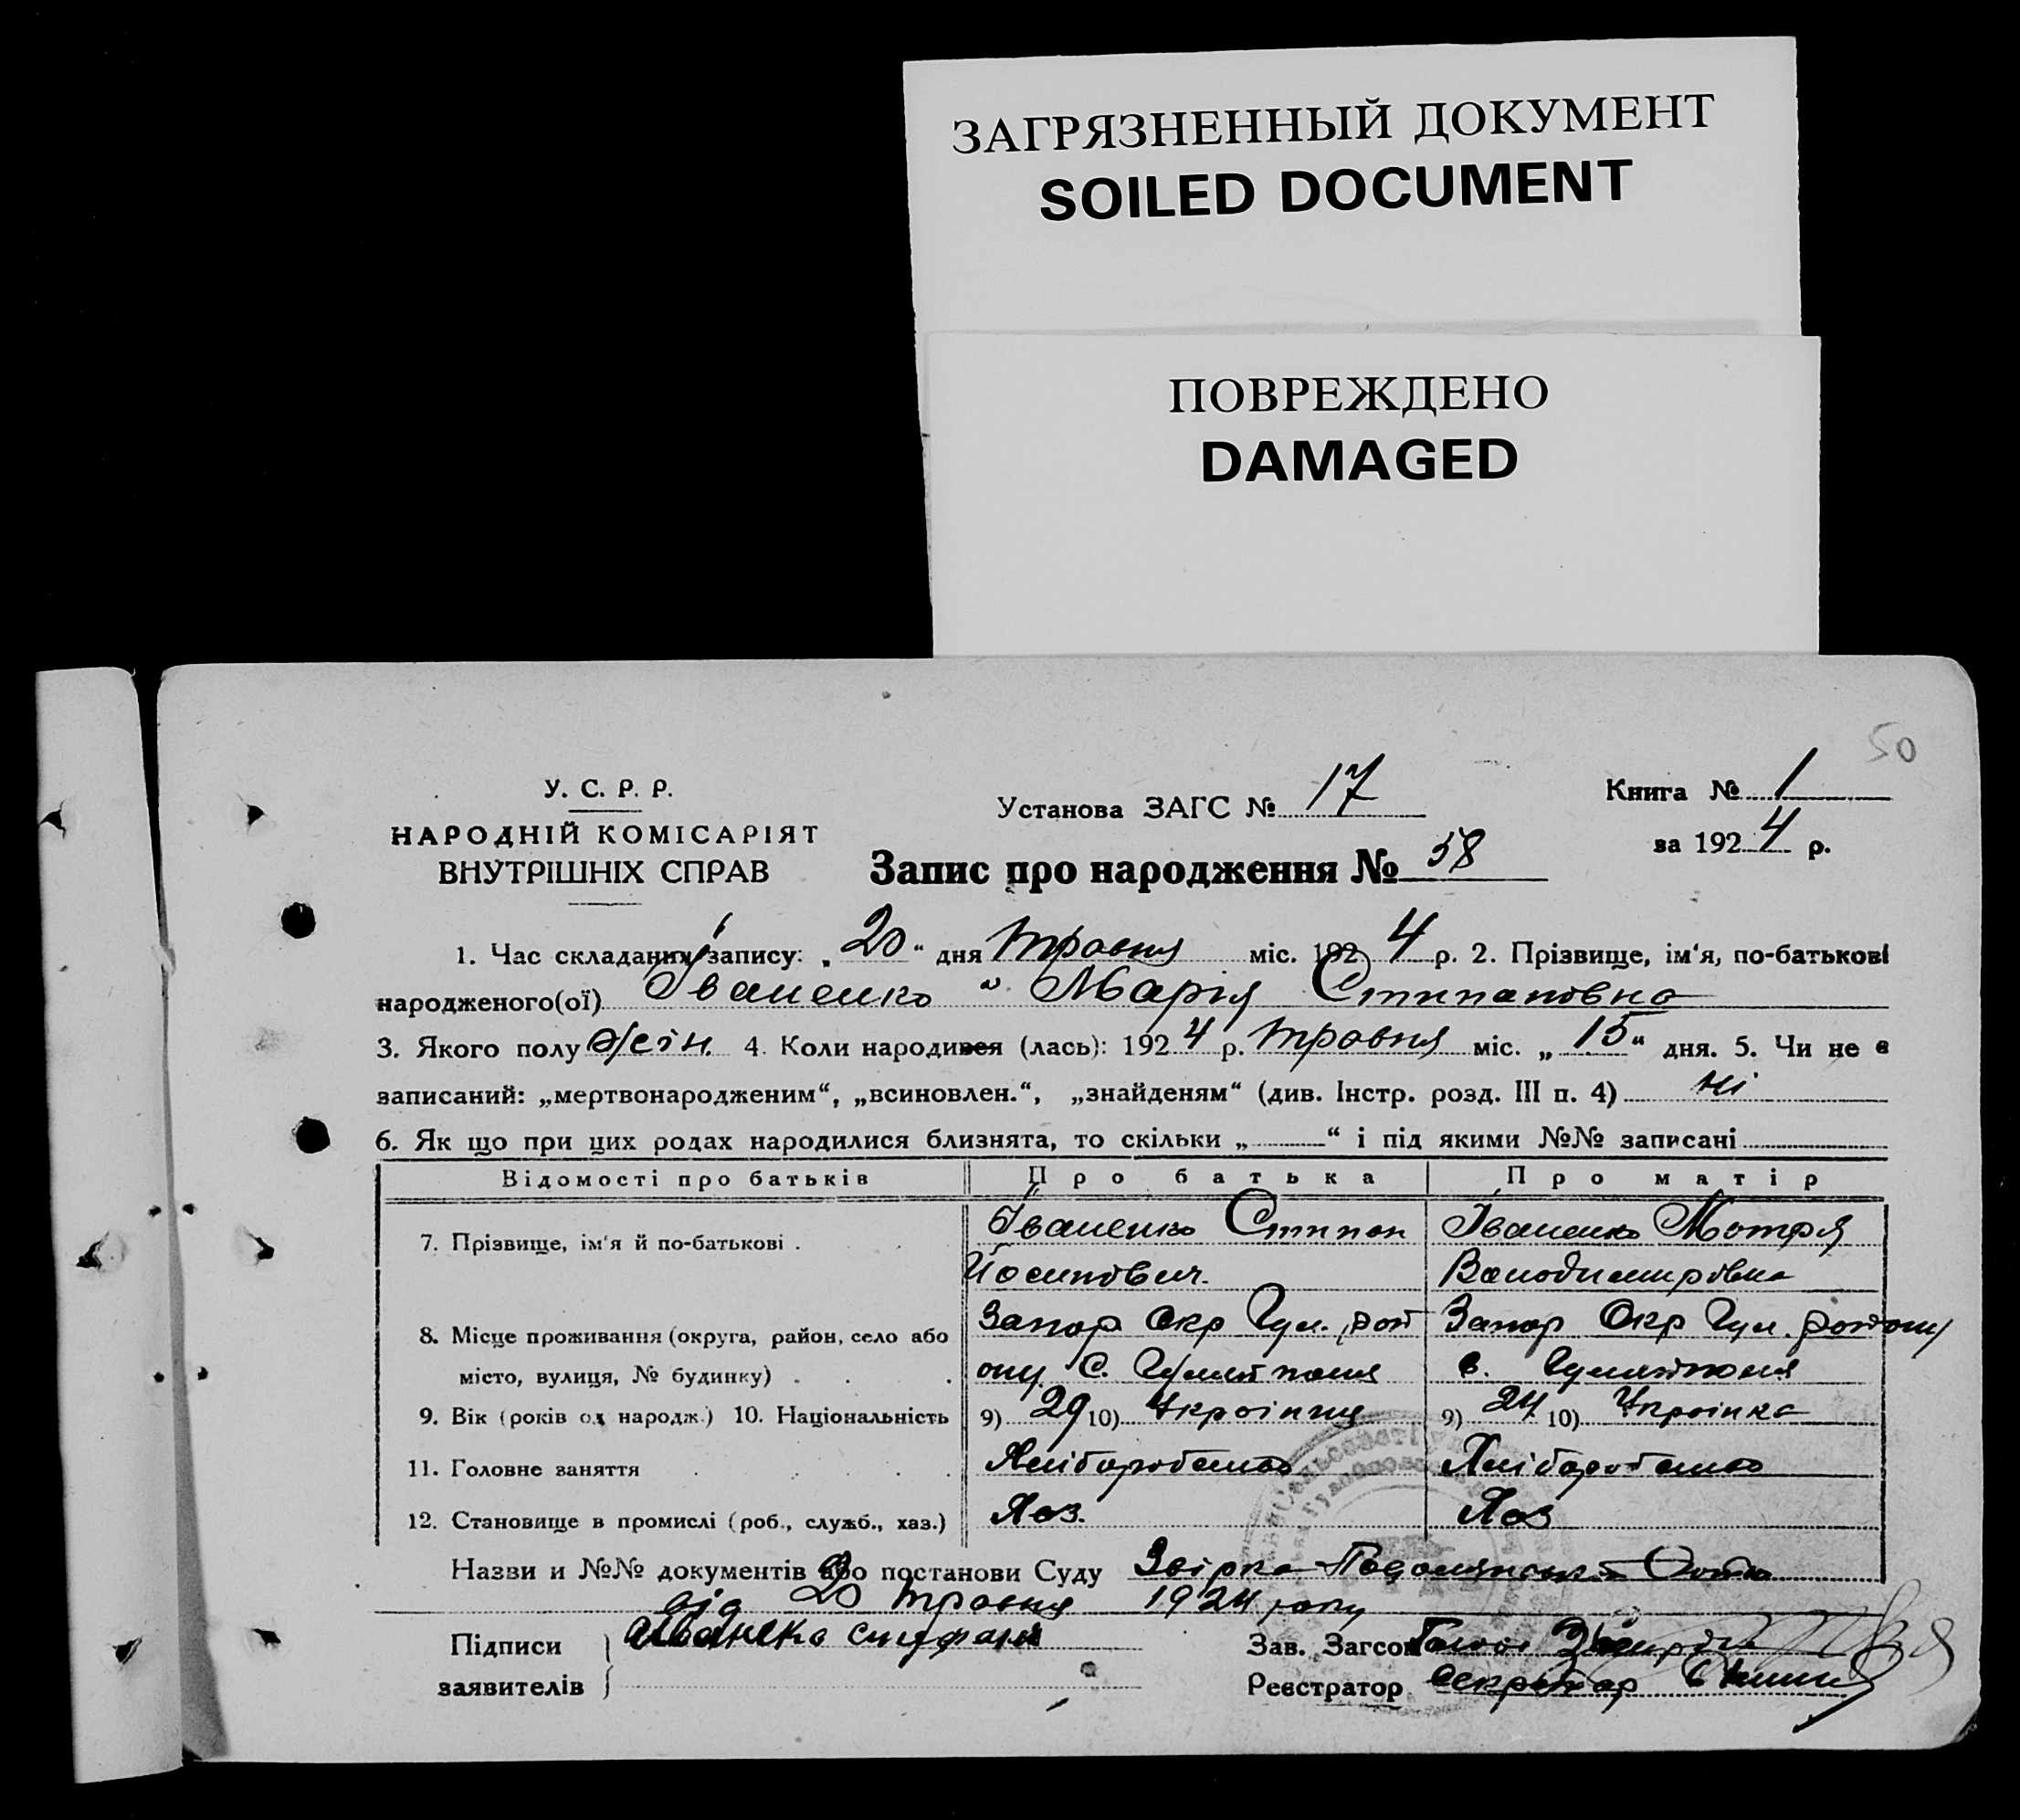 ЗАГРЯЗНЕННЫЙ ДОКУМЕНТ
SOILED DOCUMENT
ПОВРЕЖДЕНО
DAMAGED
50
У. С. Р. Р.
НАРОДНІЙ КОМІСАРІЯТ
ВНУТРІШНІХ СПРАВ
Установа ЗАГС № 17
Книга № 1
за 1924 р.
Запис про народження № 58
1. Час складання запису: „20“ дня травня міс. 1924 р. 2. Прізвище, ім'я, по-батькові
народженого(ої) Іваненко Марія Стипановна
3. Якого полу жін. 4. Коли народився (лась): 1924 р. травня міс. „15“ дня. 5. Чи не є
записаний: „мертвонародженим“, „всиновлен.“, „знайденям“ (див. Інстр. розд. III п. 4) ні
6. Як що при цих родах народилися близнята, то скільки „ “ і під якими №№ записані
Відомості про батьків Про батька Про матір
7. Прізвище, ім'я й по-батькові . Іваненко Стипан Іваненко Мотря
Йосипович. Володимировна
8. Місце проживання (округа, район, село або Запор Окр Гул. рай Запор Окр Гул. району
місто, вулиця, № будинку) . ону С. Гуляйполя с. Гуляйполя
9. Вік (років од народж.) 10. Національність 9) 29 10) Україниц 9) 24 10) Українка
11. Головне заняття Хліборобство Хліборобство
12. Становище в промислі (роб., служб., хаз.) Хаз. Хаз
Назви и №№ документів або постанови Суду
від 20 травня 1924 року
Підписи
заявителів
Зав. Загсом
Реєстратор секретар